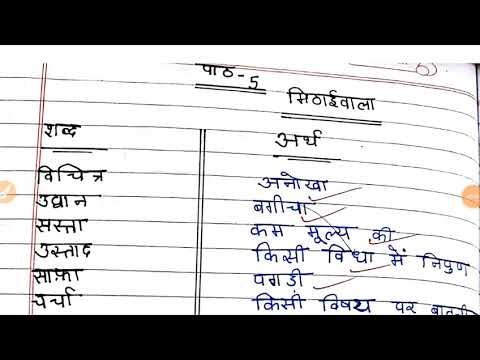 पाठ-5
मिठाईवाला
शब्द अर्थ
विचित्र अनोखा
उद्यान बगीचा
सस्ता कम मूल्य की
उस्ताद किसी विधा में निपुण
साफ़ा पगड़ी
चर्चा किसी विषय पर